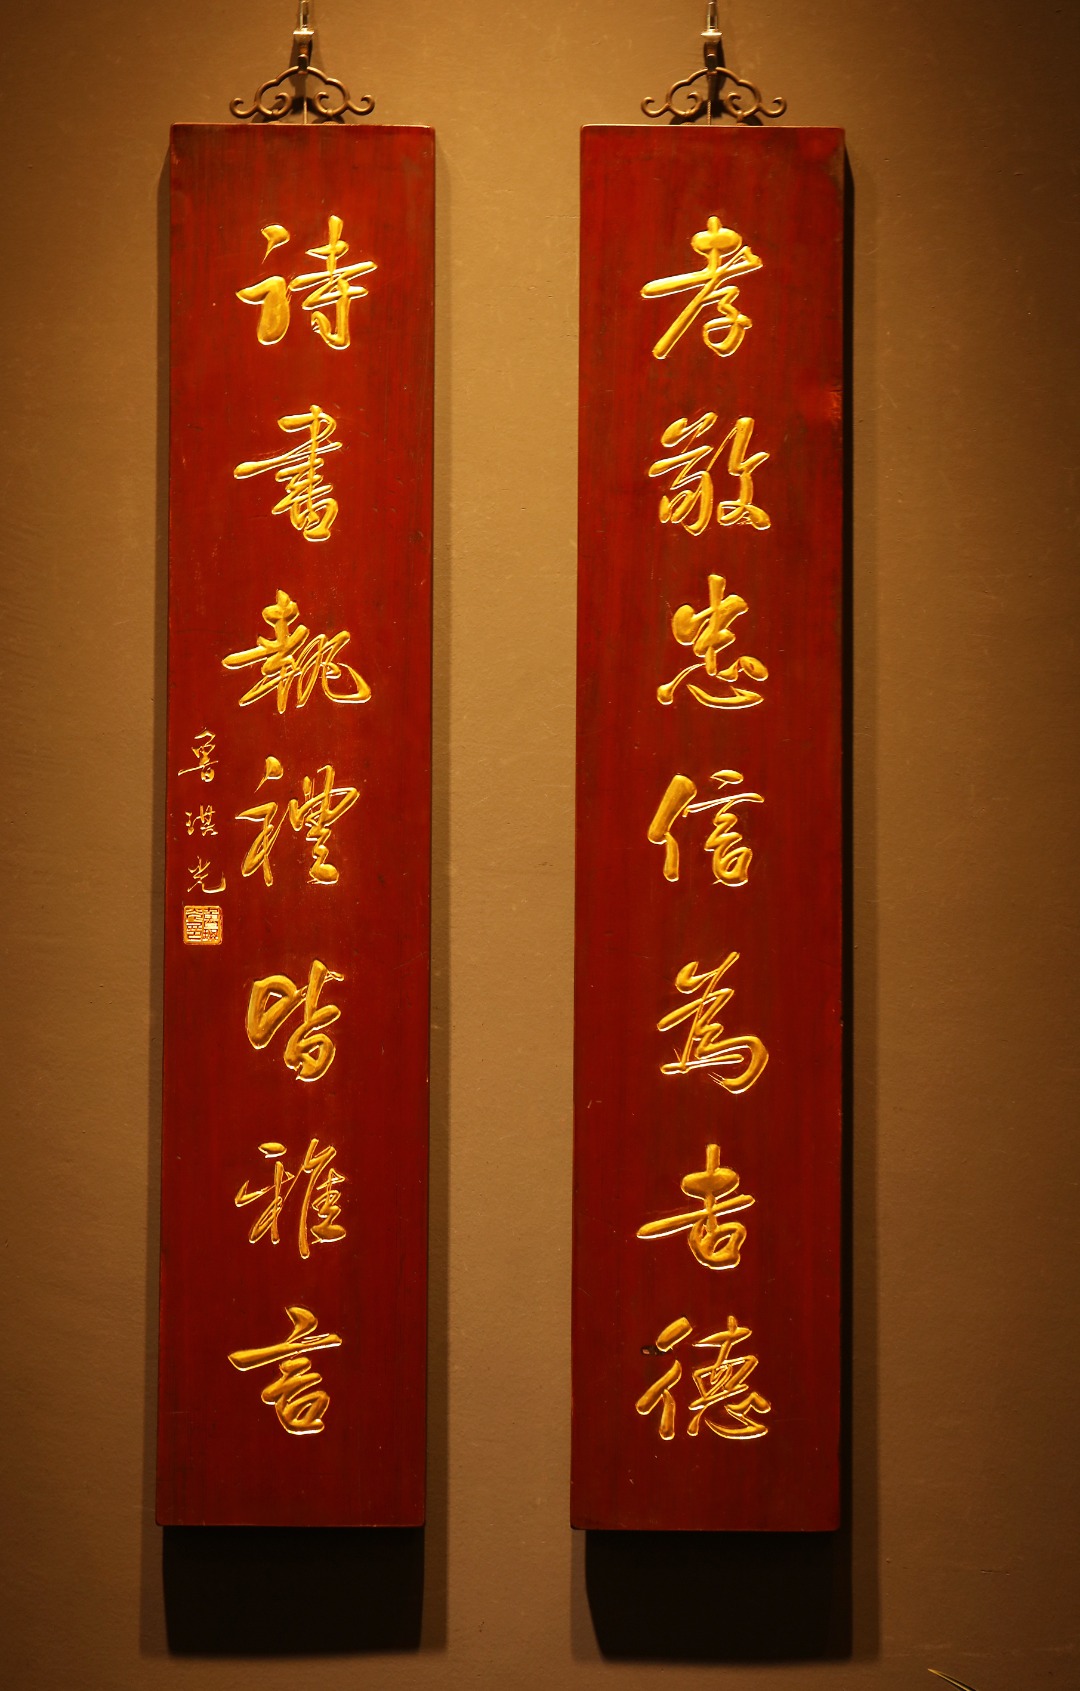 孝敬忠信為吉德
詩書執禮皆雅言
魯琪光